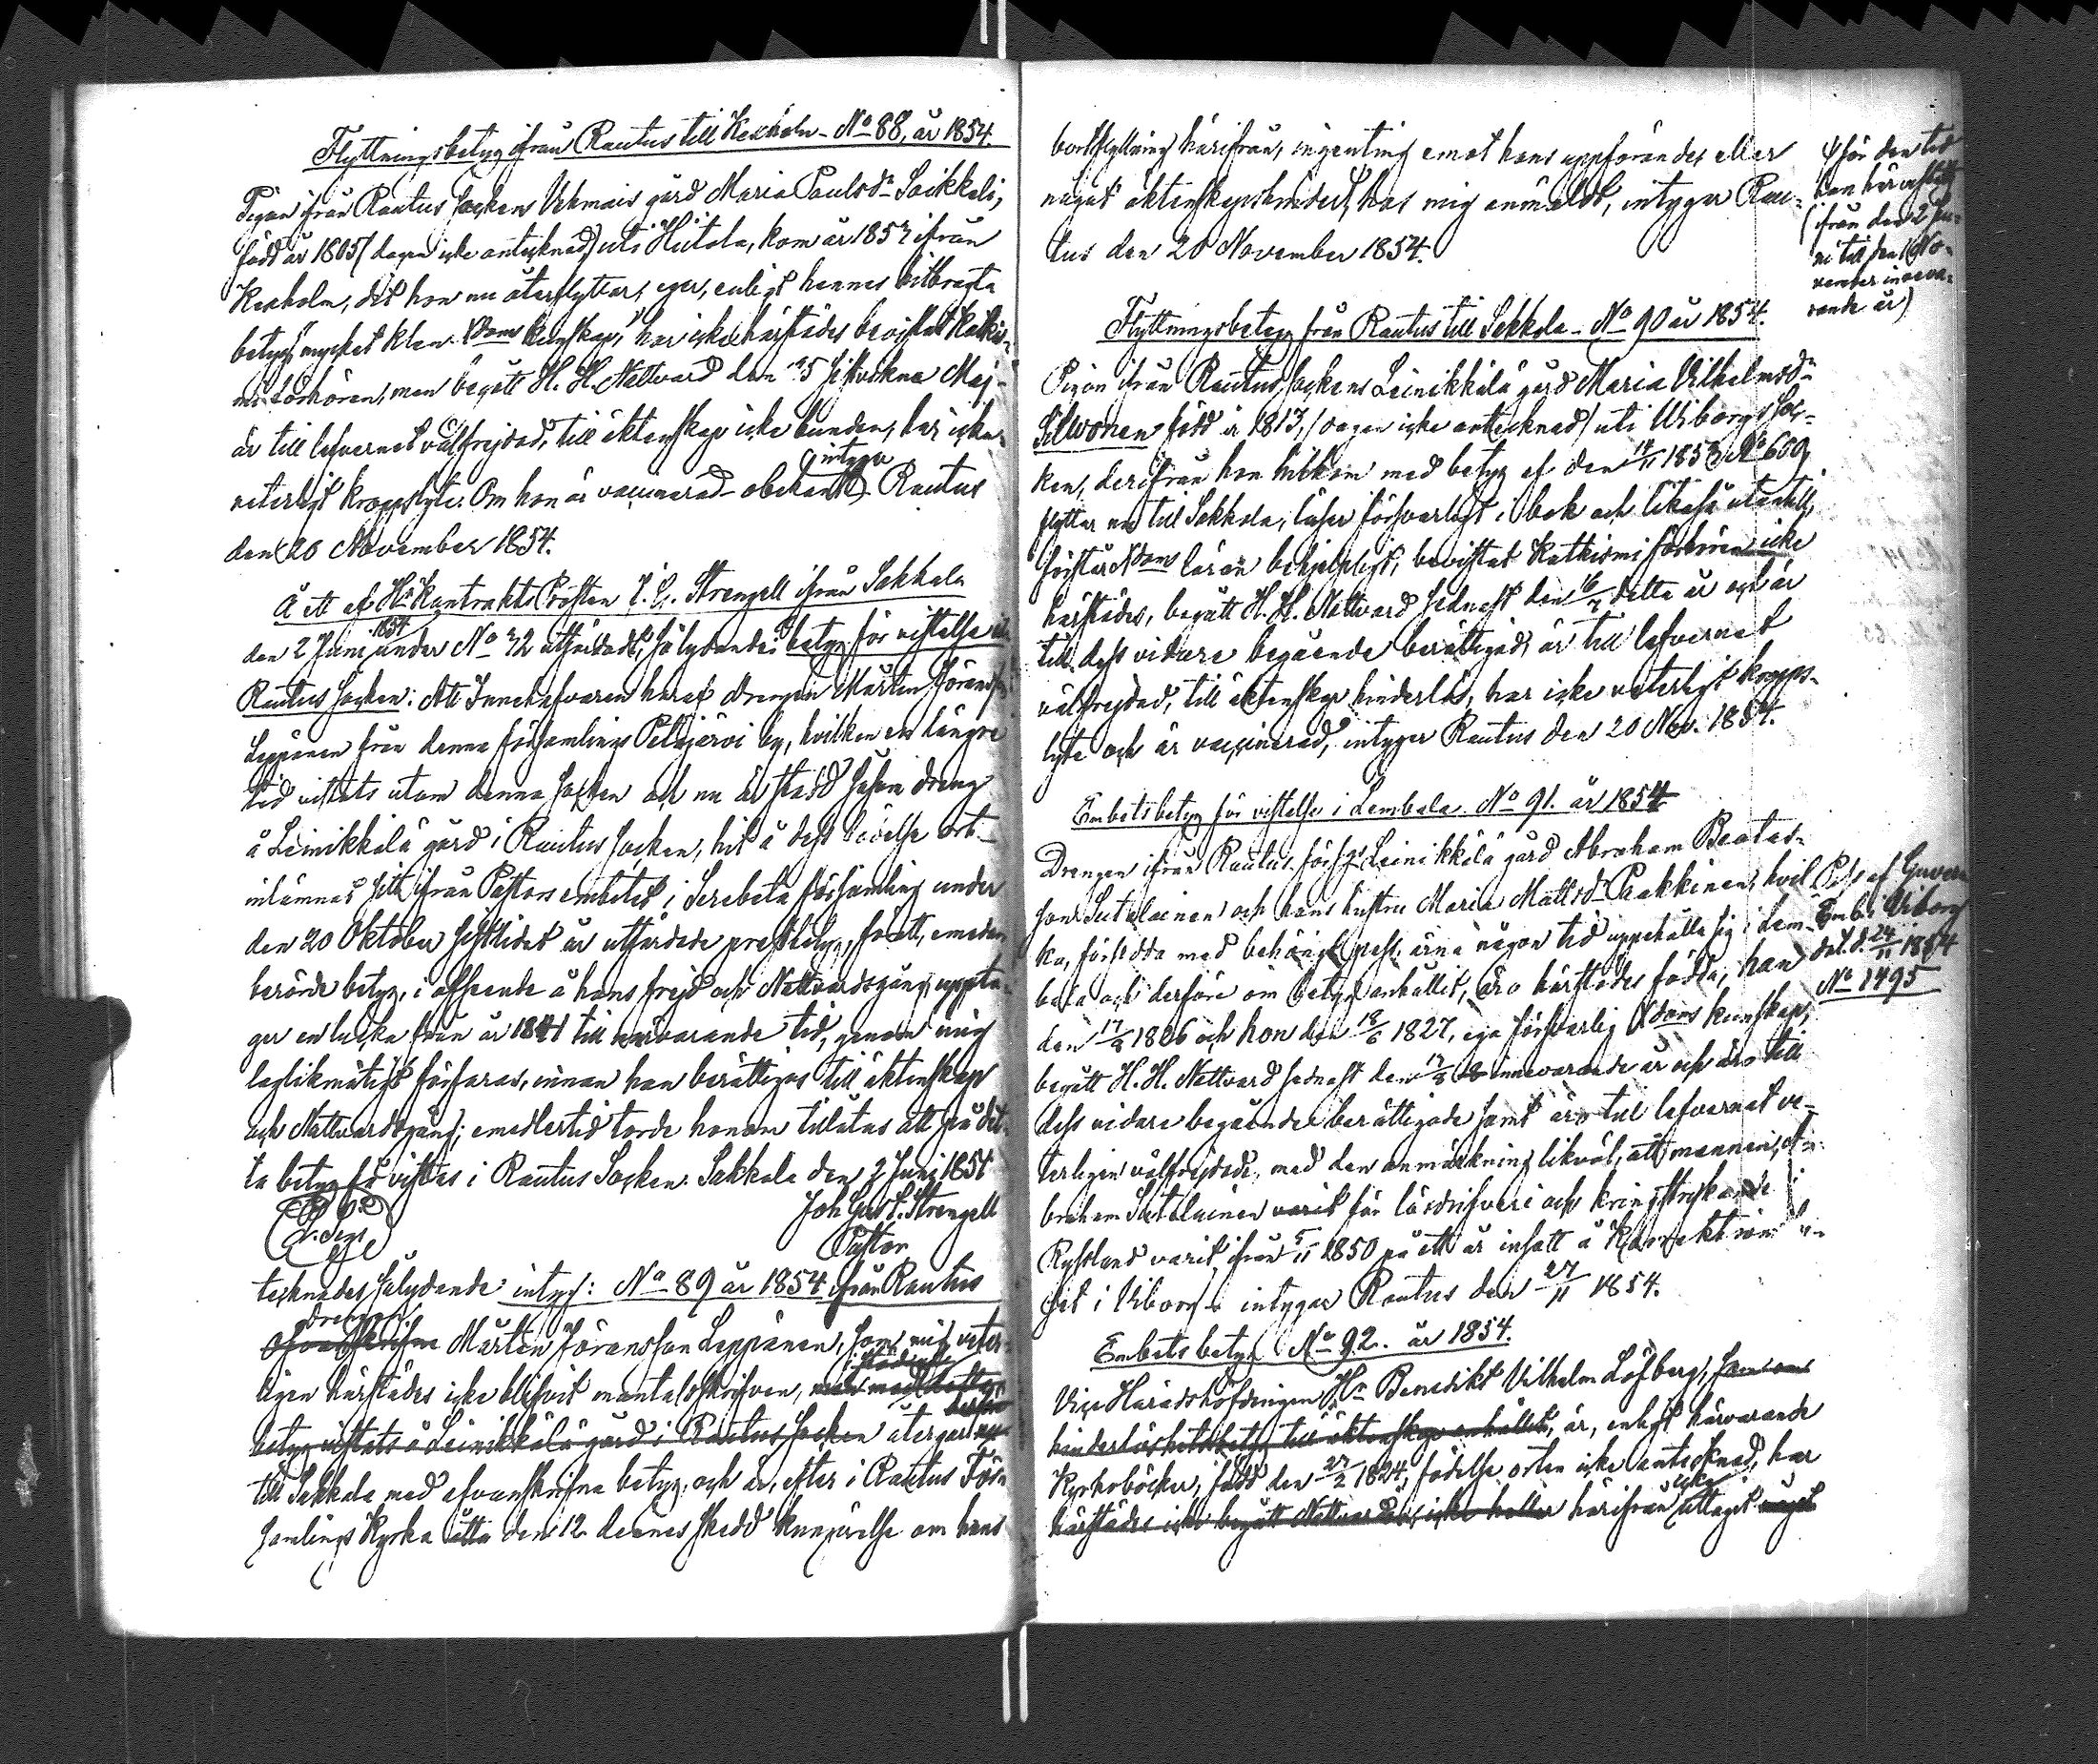 Flyttningsbetyg ifrån Rautus till Kexholm - No 88, år 1854.
Pigan ifrån Rautus Sockens Vehmais gård Maria Paulsdr Loikkoli,
född år 1805 (dagen icke antecknad) uti Hiitola, kom år 1852 ifrån
Kexholm, dit hon nu återflyttar, eger, enligt hennes hitbragta
betyg "mycket klen Xdoms kunskap", har icke härstädes bevistat Katkis-
mi Förhören, men begått H. H. Nattvard den 25 sistvekne Maj,
är till lefvernet välfrejdad, till äktenskap icke bunden, har icke
veterligt kroppslyte. Om hon är vaccinerad - obekant, intyga Rautus
den 20 November 1854.
Å ett af Hr Kontrakts Prosten J. G. Strengell ifrån Sakkola
den 2 Juni 1854 under No 32 utfärdadt, sålydandes betyg för vistelse i
Rautus Socken: Att Innehafvaren häraf Drengen Mårten Jöransson
Leppänen från denna församlings Petäjärvi by, hvilken en längre
tid vistats utom denna Socken och nu är stadd såsom dreng
å Leinikkälä gård i Rautus Socken, hit å dess födelse ort
inlämnat sitt ifrån Pastors embetet i Serebeta församling under
den 20 Oktober sistlidet år utfärdade prestbetyg, så ätt, emedan
berörde betyg, i afseende å hans frejd och Nattvardsgång, uppta-
ger en lucka från år 1841 till närvarande tid, genom mig
laglikmätigt förfaras, innan han berättigas till äktenskap
och Nattvardsgång; emedlertid torde honom tillåtas att på det-
ta betyg få vistas i Rautus Socken. Sakkola den 2 Juni 1854
Joh. Gust. Strengell
Pastor
tecknades sålydande intyg: No 89 år 1854 ifrån Rautus
Drengen
Ofvanskrifne Mårten Jöransson Leppänen, som mig veter-
ligen härstädes icke blifvit mantalsskrifven, men med detta
betyg vistats å Leinikkälä gård i Rautus Socken återgår nu
till Sakkola med ofvanskrifne betyg, och är, efter i Rautus För-
samlings Kyrka åtta den 12 dennes skedd kungörelse om hans
bortflyttning härifrån, ingenting emot hans uppförandes eller
något äktenskapshinder, har mig anmäldt, intygar Rau-
tus den 20 November 1854.
för den tid
han här vistats
(ifrån den 2 Ju-
ni till den No-
vember inneva-
rande år)
Flyttningsbetyg från Rautus till Sakkola - No 90 år 1854.
Pigan ifrån Rautus Sockens Leinikkälä gård Maria Vilhelmsdr
Silvonen född år 1813, (dagen icke antecknad) uti Wiborgs Soc-
ken, derifrån hon hitkom med betyg af den 14/11 1853 No 609,
flyttar nu till Sakkola, läser försvarligt i bok och likaså utantill,
förstår Xdoms läran behjelpligt, bevistat Katkismi förhören icke
härstädes, begått H. H. Nattvard sednast den 16/7 detta år och är
till dess vidare begående berättigad, är till lefvernet
välfrejdad, till äktenskap hinderlös, har icke veterligt kropps-
lyte och är vaccinerad, intygar Rautus den 20 Nov. 1854.
Embetsbetyg för vistelse i Lembala. No 91. år 1854
Drengen ifrån Rautus förs:gs Leinikkälä gård Abraham Beatas-
son Sutelainen och hans hustru Maria Mattsdr Paakkinen, hvil-
ka, försedda med behörigt pass, ärna någon tid uppehålla sig i Lem-
bala och derföre om betyg anhållit, äro härstädes födda, han
den 17/3 1826 och hon den 18/6 1827, ega försvarlig Xdoms kunskap,
begått H. H. Nattvard sednast den 12/3 innevarande år och äro till
dess vidare begående berättigade samt äro till lefvernet ve-
terligen välfrejdade, med den anmärkning likväl, att mannen, A-
braham Sutelainen varit för lösdrifveri och kringstrykande i
Ryssland varit ifrån 5/11 1850 på ett år insatt å Korrektions in-
det i Viborg - intygar Rautus den 27/11 1854.
Pass af Guvern
Emb: i Viborg
dat. d. 24/11 1854
No 1495
Embetsbetyg No 92. år 1854.
Vice Häradshöfdingen Hr Benedikt Vilhelm Löfberg, som om
hinderlöshetsbetyg till äktenskap anhållit, är, enligt härvarande
Kyrkoböcker, född den 27/2 1824, födelse orten icke antecknad, har
härstädes icke begått Nattvarden, icke heller härifrån icke uttagit något